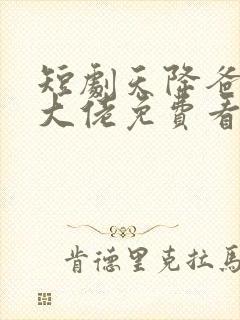 短劇天降爸
大佬免費看
肯德里克拉馬